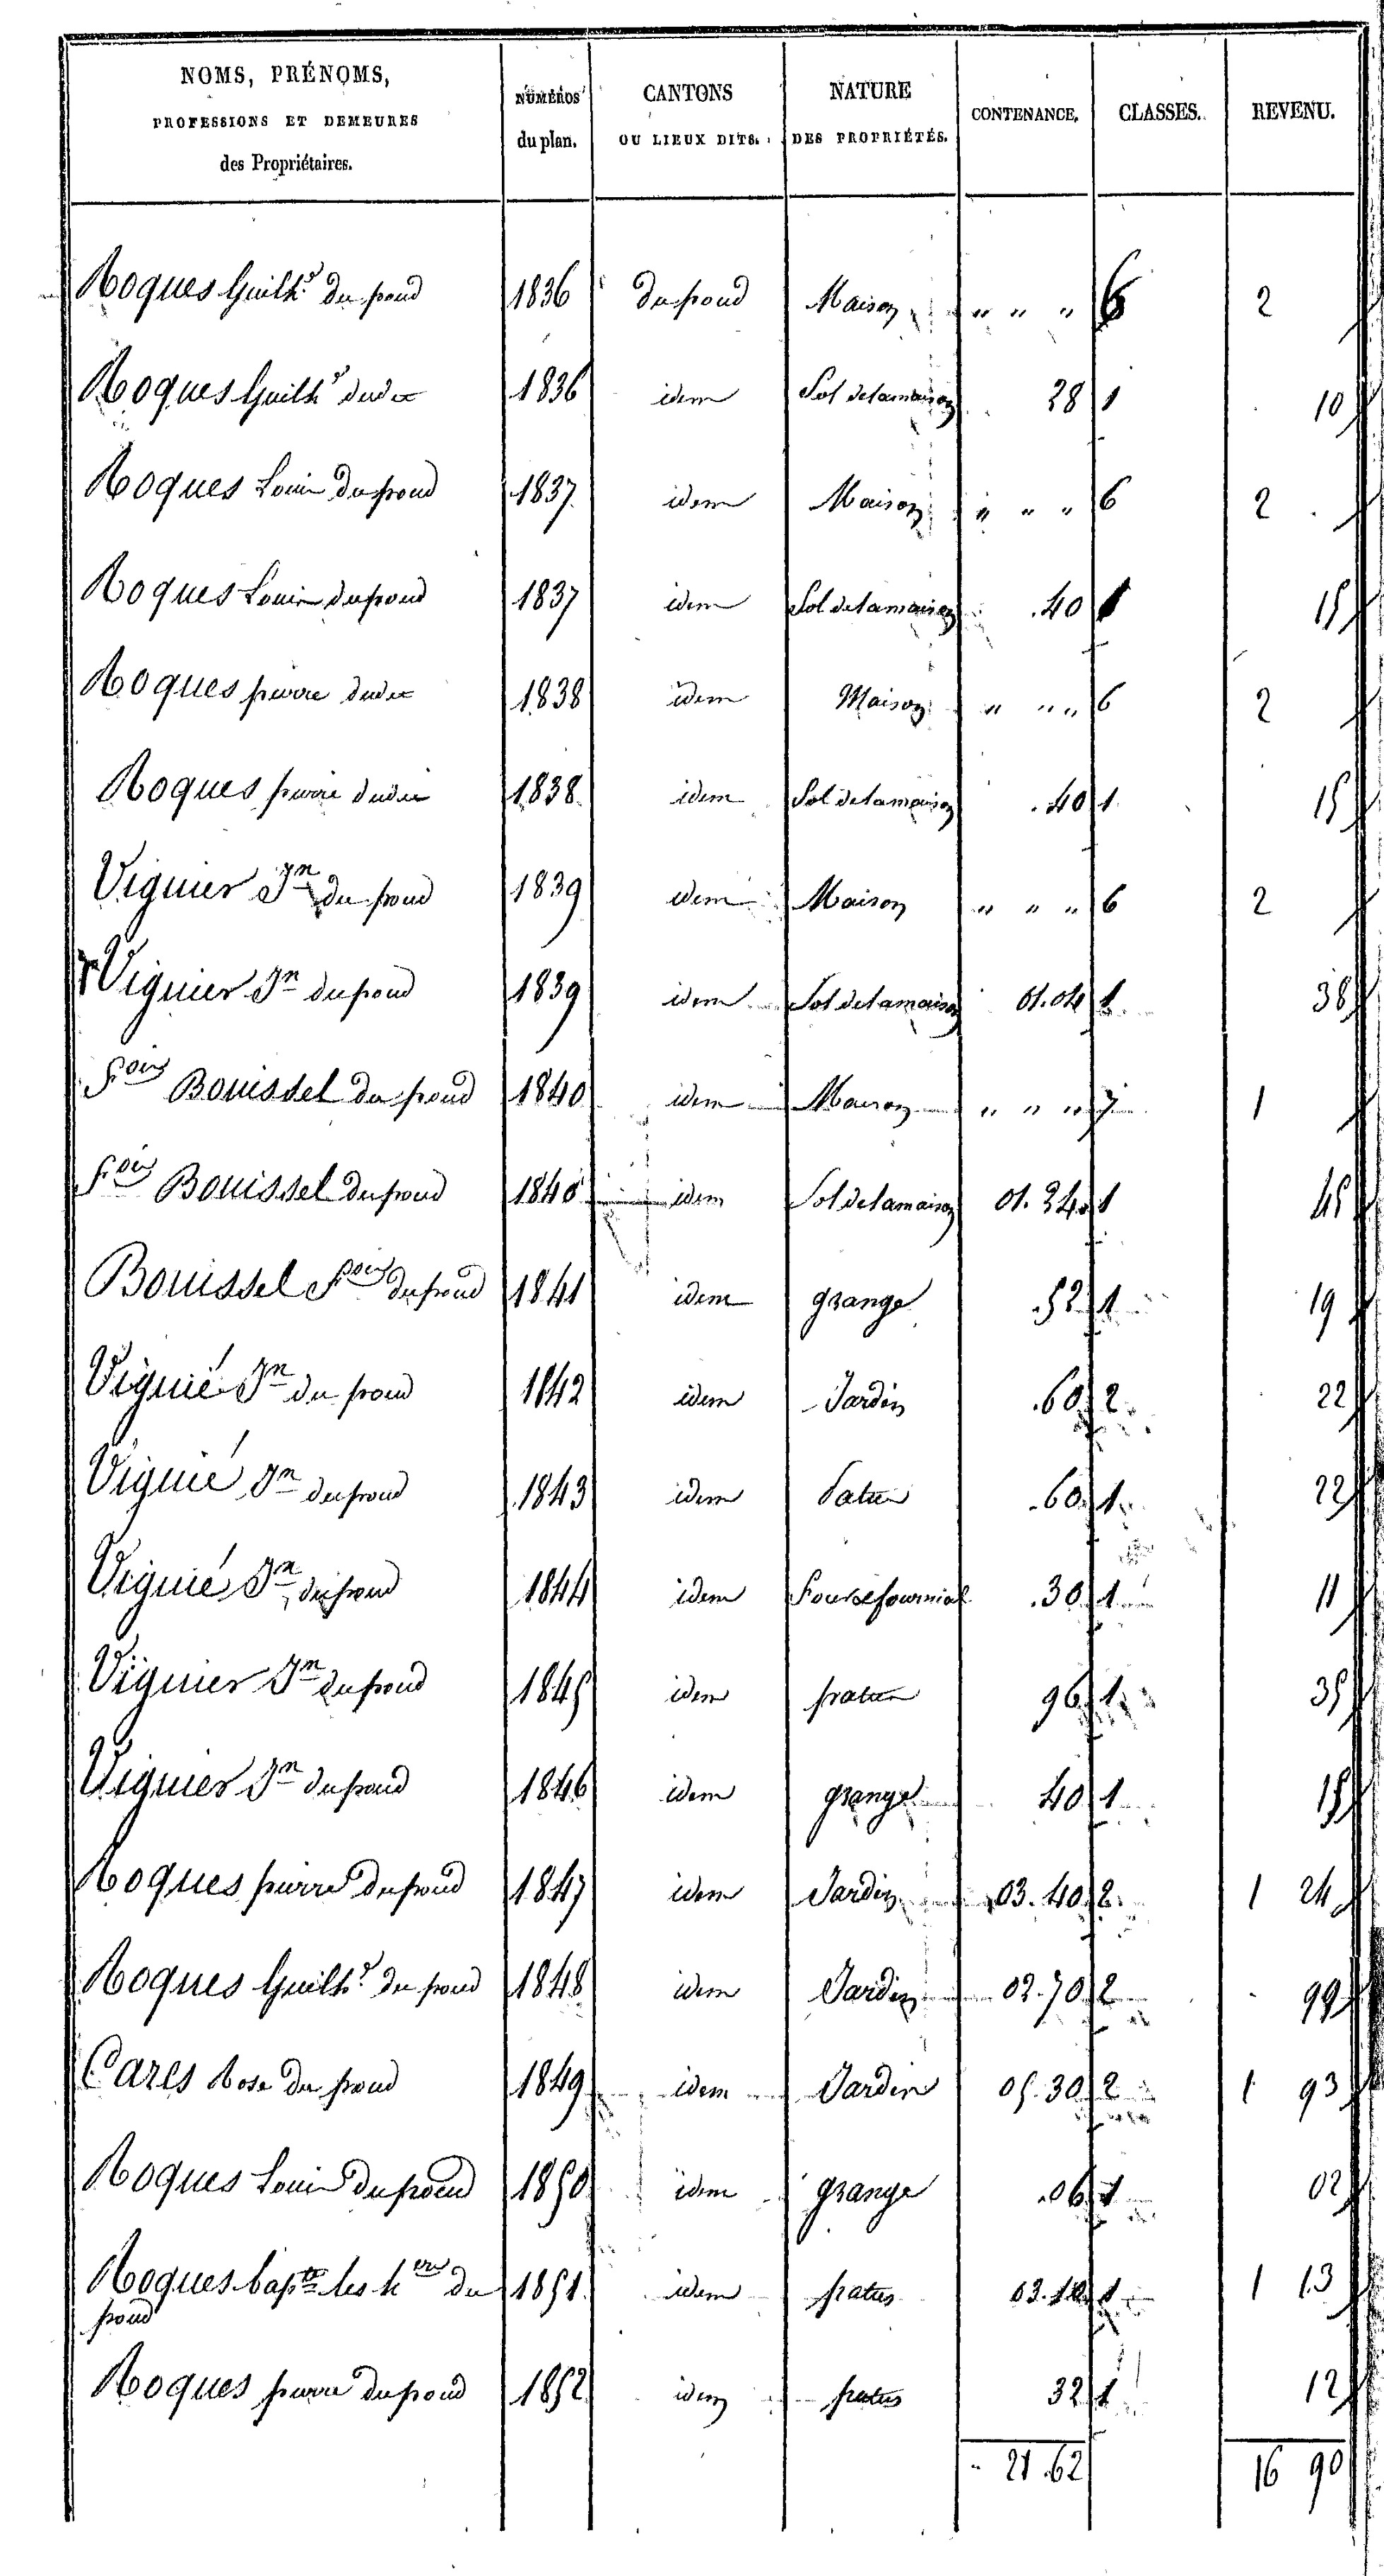 NOMS, PRÉNOMS,
PROFESSIONS ET DEMEURES
des Propriétaires.
NUMÉROS
du plan.
CANTONS
OU LIEUX DITS.
NATURE
DES PROPRIÉTÉS.
CONTENANCE.
CLASSES.
REVENU.
Roques Guilhe du frond 1836 du frond Maison " " " 6 2
Roques Guilhe dudit 1836 idem Sol de la maison 28 1 10
Roques Louis du frond 1837 idem Maison " " " 6 2
Roques Louis du frond 1837 idem Sol de la maison .40 1 15
Roques pierre dudit 1838 idem Maison " " " 6 2
Roques pierre dudit 1838 idem Sol de la maison .40 1 15
Viguier Jn du frond 1839 idem Maison " " " 6 2
Viguier Jn du frond 1839 idem Sol de la maison 01.04 1 38
fois Bouissel du frond 1840 idem Maison " " " 7 1
fois Bouissel du frond 1840 idem Sol de la maison 01.24 1 45
Bouissel fois du frond 1841 idem grange .52 1 19
Viguié Jn du frond 1842 idem Jardin .60 2 22
Viguié Jn du frond 1843 idem Patus .60 1 22
Viguié Jn du frond 1844 idem four de fournial .30 1 11
Viguier Jn du frond 1845 idem patus 96 1 35
Viguier Jn du frond 1846 idem grange 40 1 15
Roques pierre du frond 1847 idem Jardin 03.40 2 1 24
Roques Guilhe du frond 1848 idem Jardin 02.70 2 99
Cazes Rose du frond 1849 idem Jardin 05.30 2 1 93
Roques Louis du frond 1850 idem grange .06 1 02
Roques bapte les hers du 1851 idem patus 03.12 1 1 13
frond
Roques pierre du frond 1852 idem patus 32 1 12
21.62 16 90